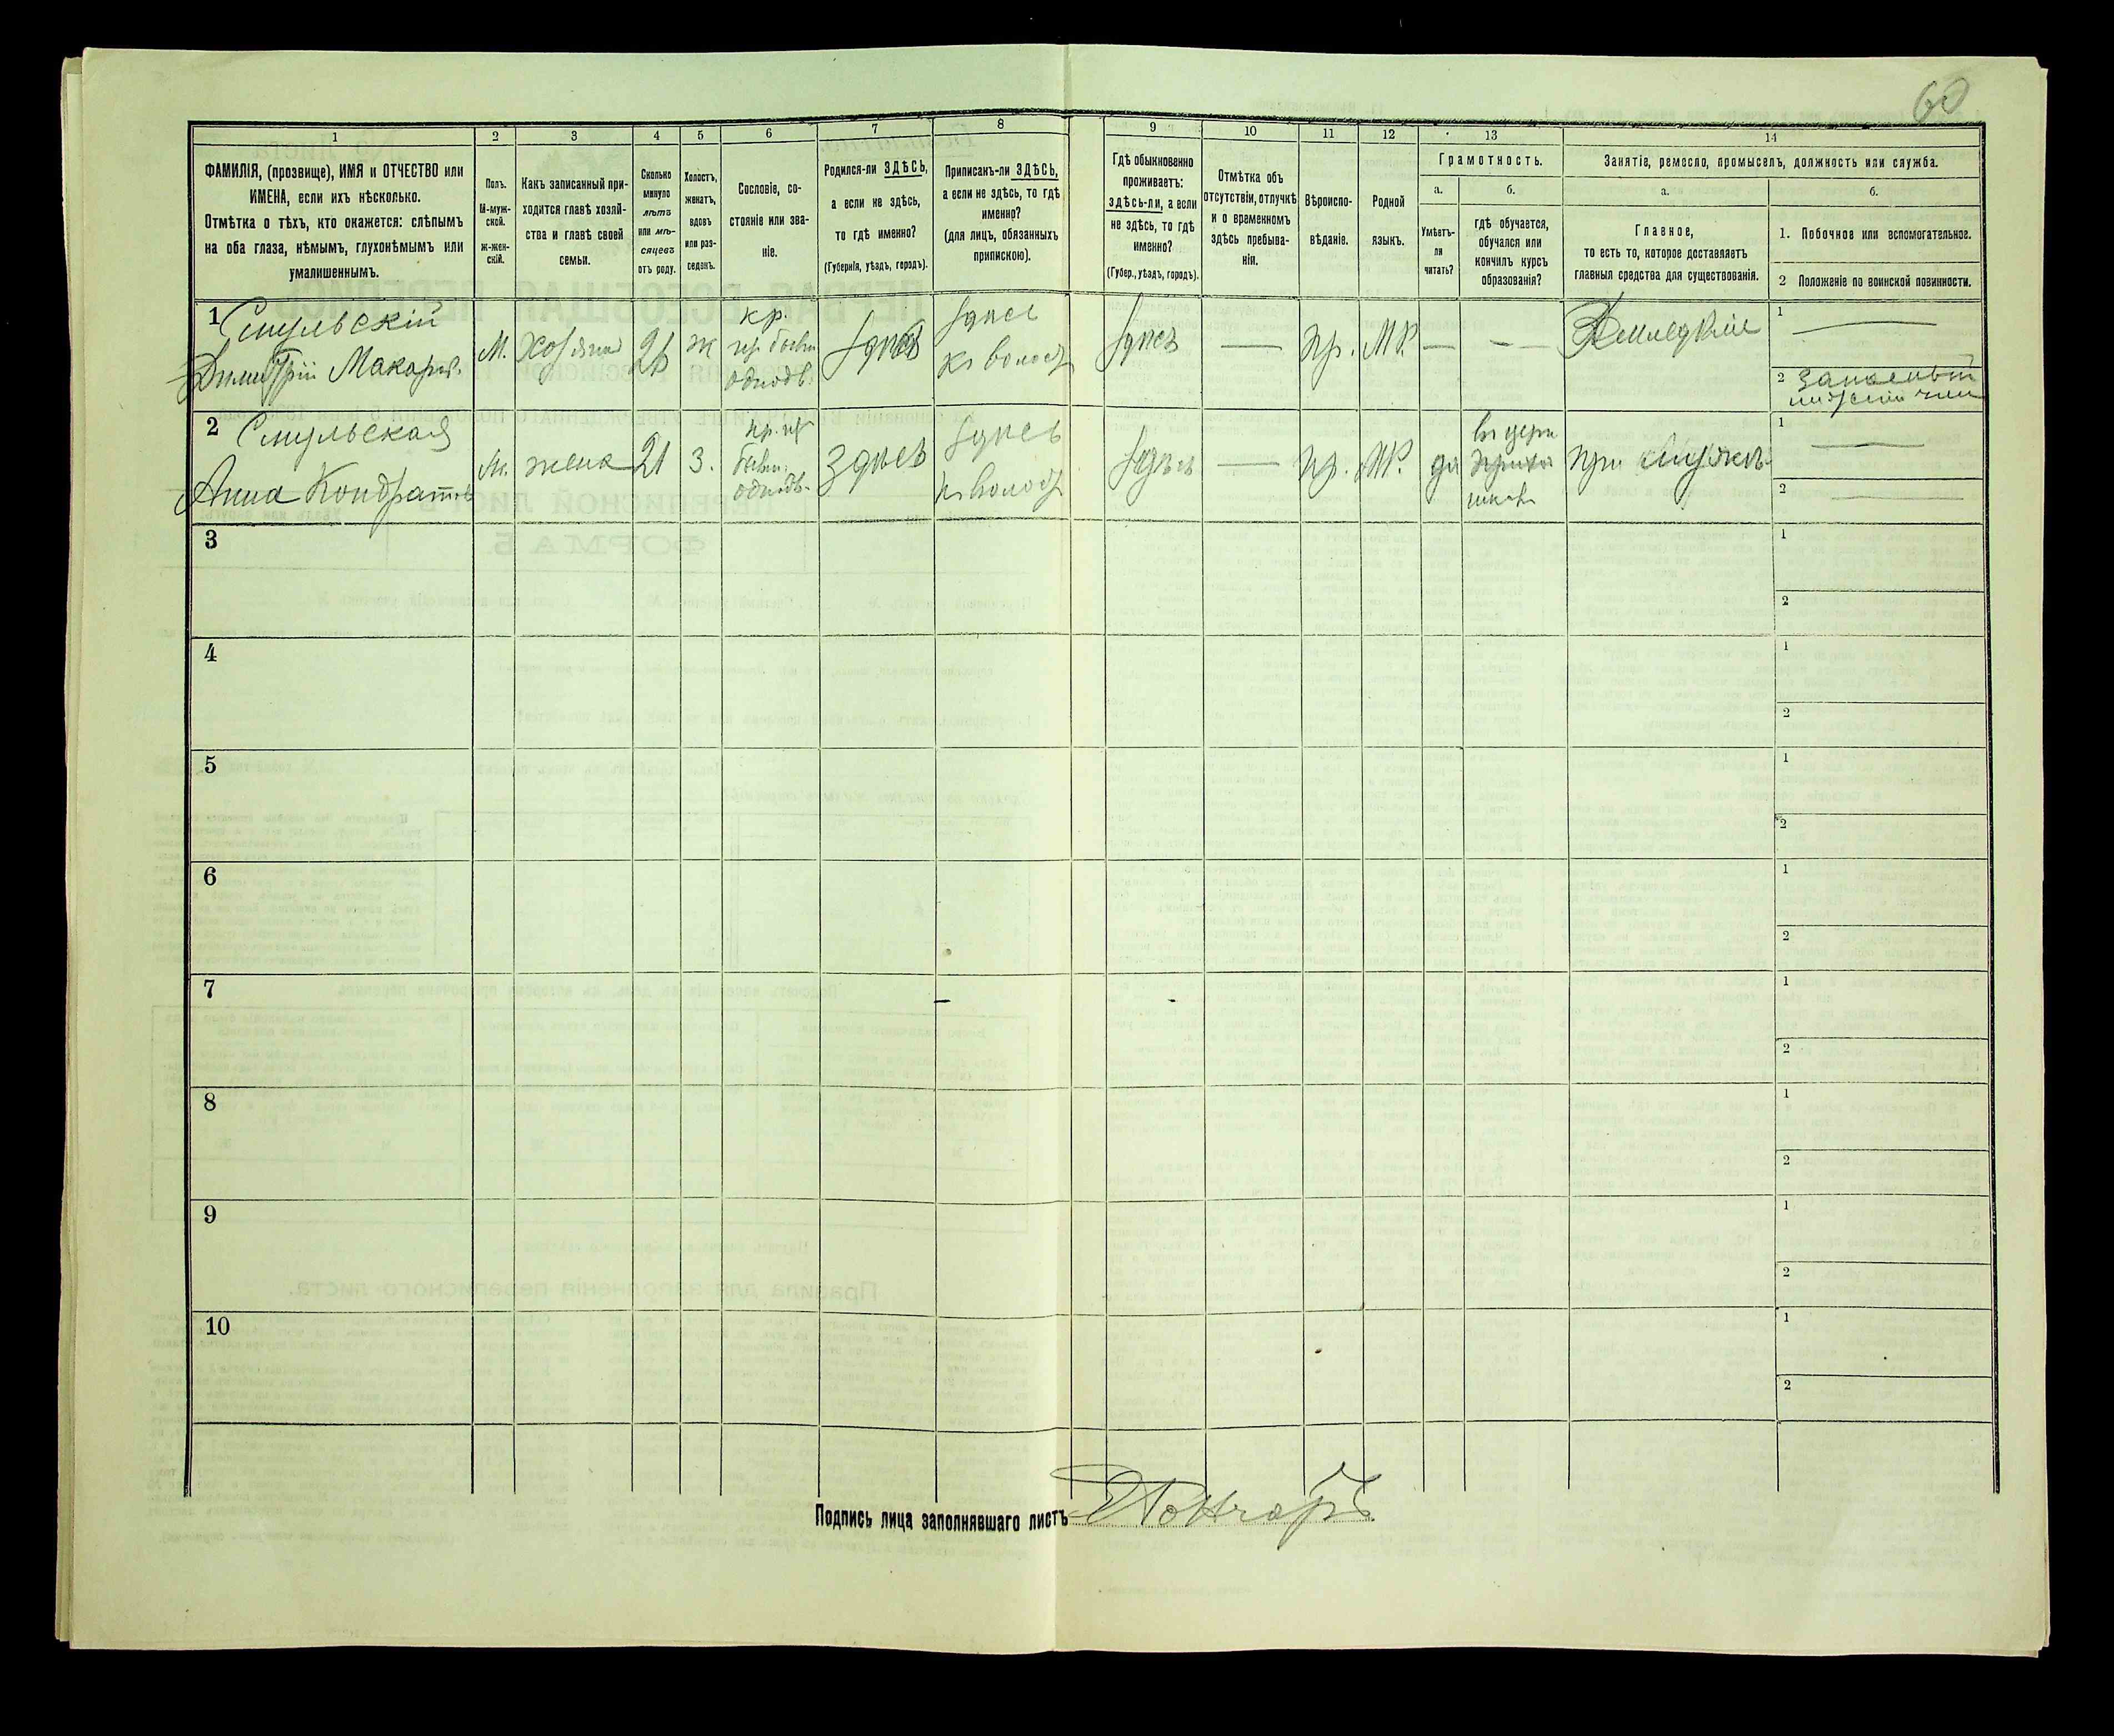 60
1 2 3 4 5 6 7 8 9 10 11 12 13 14
ФАМИЛІЯ, (прозвище), ИМЯ и ОТЧЕСТВО или
ИМЕНА, если ихъ нѣсколько.
Отмѣтка о тѣхъ, кто окажется: слѣпымъ
на оба глаза, нѣмымъ, глухонѣмымъ или
умалишеннымъ.
Полъ.
М-муж-
ской.
ж-жен-
скій.
Какъ записанный при-
ходится главѣ хозяй-
ства и главѣ своей
семьи.
Сколько
минуло
лѣтъ
или мѣ-
сяцевъ
отъ роду.
Холостъ,
женатъ,
вдовъ
или раз-
веденъ.
Сословіе, со-
стояніе или зва-
ніе.
Родился-ли ЗДѢСЬ,
а если не здѣсь,
то гдѣ именно?
(Губернія, уѣздъ, городъ).
Приписанъ-ли ЗДѢСЬ,
а если не здѣсь, то гдѣ
именно?
(для лицъ, обязанныхъ
припискою).
Гдѣ обыкновенно
проживаетъ:
здѣсь-ли, а если
не здѣсь, то гдѣ
именно?
(Губер., уѣздъ, городъ).
Отмѣтка объ
отсутствіи, отлучкѣ
и о временномъ
здѣсь пребыва-
ніи.
Вѣроиспо-
вѣданіе.
Родной
языкъ.
Грамотность.
а.
Умѣетъ-
ли
читать?
б.
гдѣ обучается,
обучался или
кончилъ курсъ
образованія?
Занятіе, ремесло, промыселъ, должность или служба.
а.
Главное,
то есть то, которое доставляетъ
главныя средства для существованія.
б.
1. Побочное или вспомогательное.
2 Положеніе по воинской повинности.
1 Смульскій
Димитрій Макаров.
М. Хозяинъ ж
кр.
однодв.
здѣсь
здѣсь
къ волост
здѣсь — пр. МР. — —
1 —
2 запасный
2 Смульская
Анна Кондратов
жена 21 З.
однодв.
здѣсь
здѣсь
здѣсь — пр. МР. да
при мужѣ
1 —
2 —
3 1
2
4 1
2
5 1
2
6 1
2
7 1
2
8 1
2
9 1
2
10 1
2
Подпись лица заполнявшаго листъ